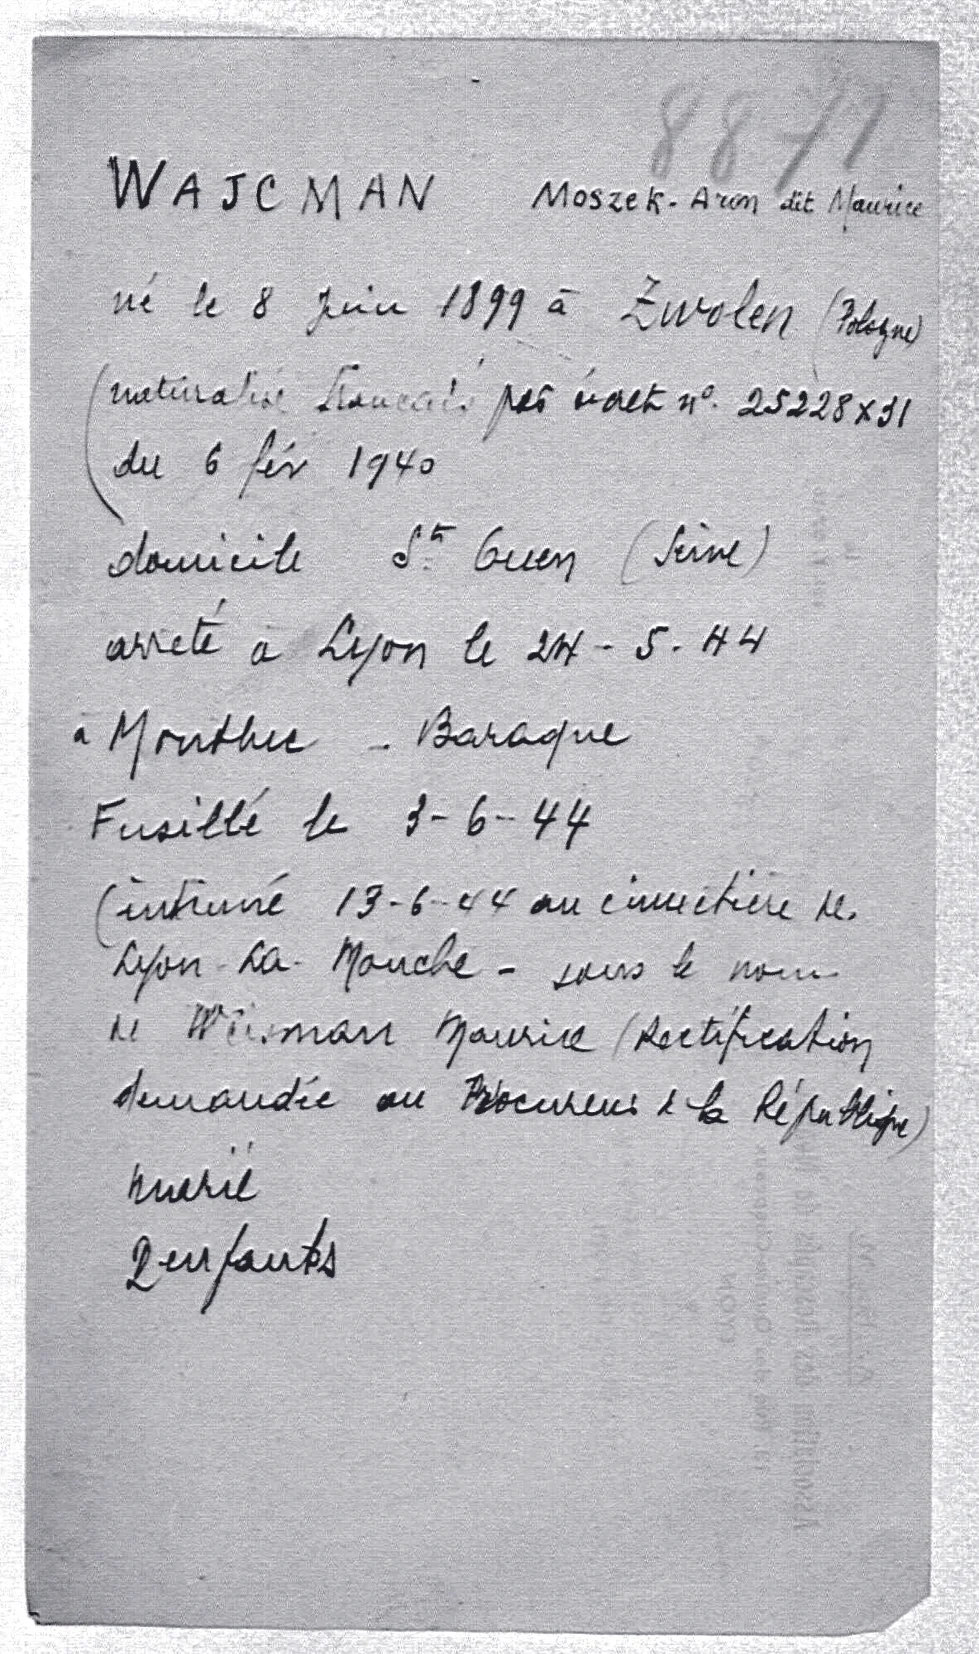 8877
WAJCMAN Moszek-Aron dit Maurice
né le 8 juin 1899 à Zwolen (Pologne)
(naturalisé Français par décret n° 25228x31
du 6 fév 1940
domicile St Ouen (Seine)
arreté à Lyon le 24-5-44
à Montluc - Baraque
Fusillé le 3-6-44
(inhumé 13-6-44 au cimetière de
Lyon-La-Mouche - sous le nom
de Weisman Maurice (Rectification
demandée au Procureur de la République)
marié
2 enfants